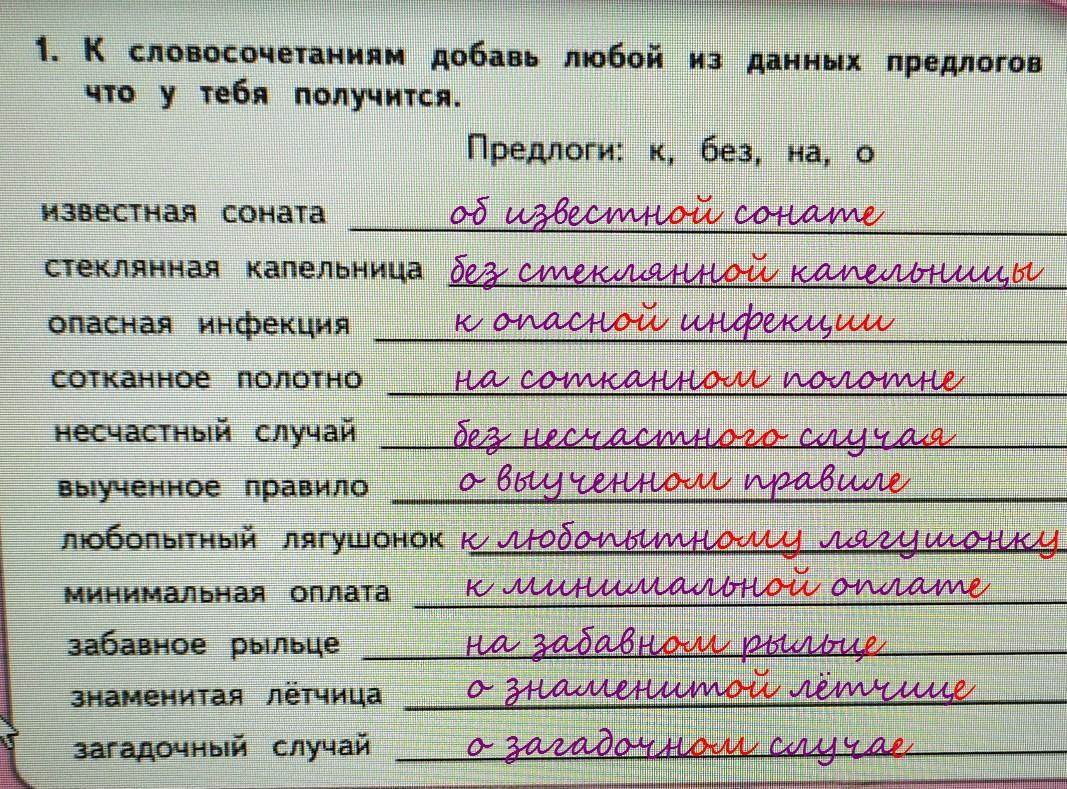 1. К словосочетаниям добавь любой из данных предлогов
что у тебя получится.
Предлоги: к, без, на, о
известная соната об известной сонате
стеклянная капельница без стеклянной капельницы
опасная инфекция к опасной инфекции
сотканное полотно на сотканном полотне
несчастный случай без несчастного случая
выученное правило о выученном правиле
любопытный лягушонок к любопытному лягушонку
минимальная оплата к минимальной оплате
забавное рыльце на забавном рыльце
знаменитая лётчица о знаменитой лётчице
загадочный случай о загадочном случае